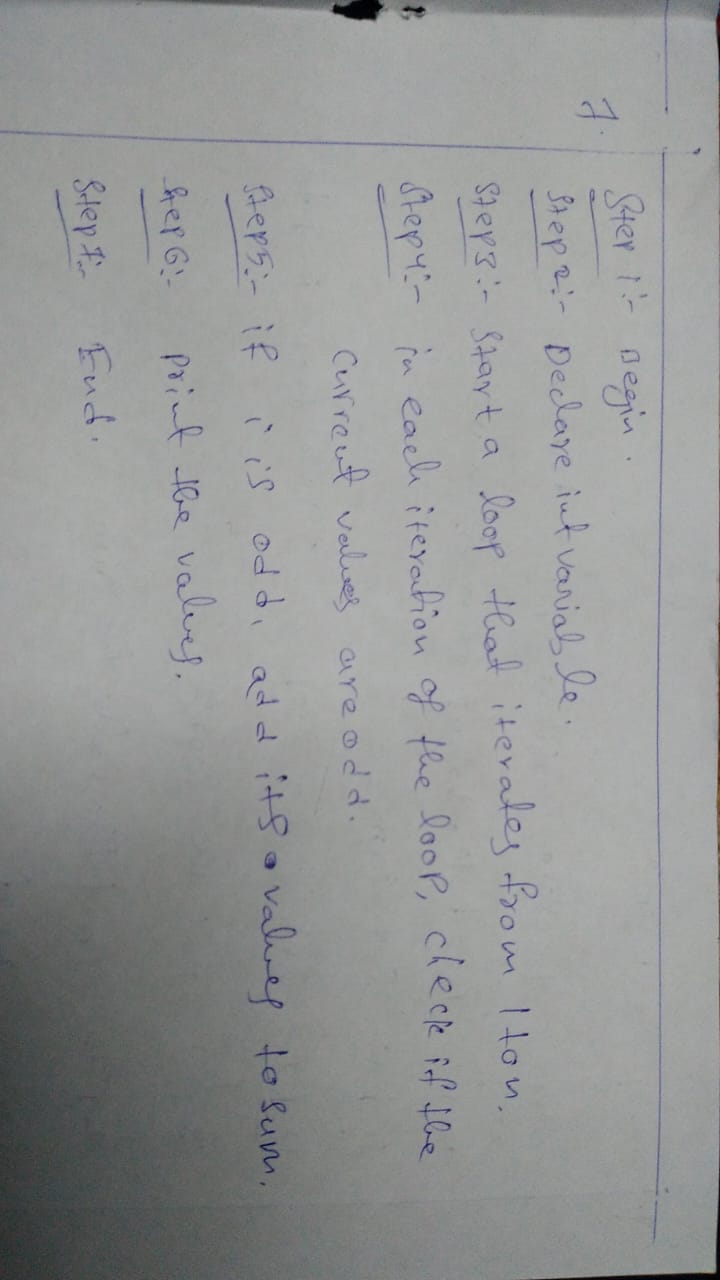 7.
Step 1:- Begin.
Step 2:- Declare int variable.
Step 3:- Start a loop that iterates from 1 to n.
Step 4:- in each iteration of the loop, check if the
current values are odd.
Step 5:- if i is odd, add its values to sum.
Step 6:- print the values.
Step 7:- End.